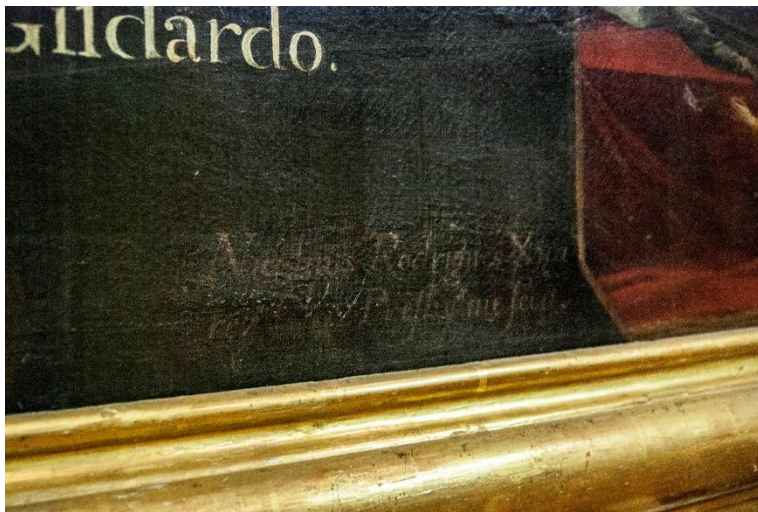 Gildardo.
Nicolaus Rodrigu z Xua
rez Presb.º me fecit.